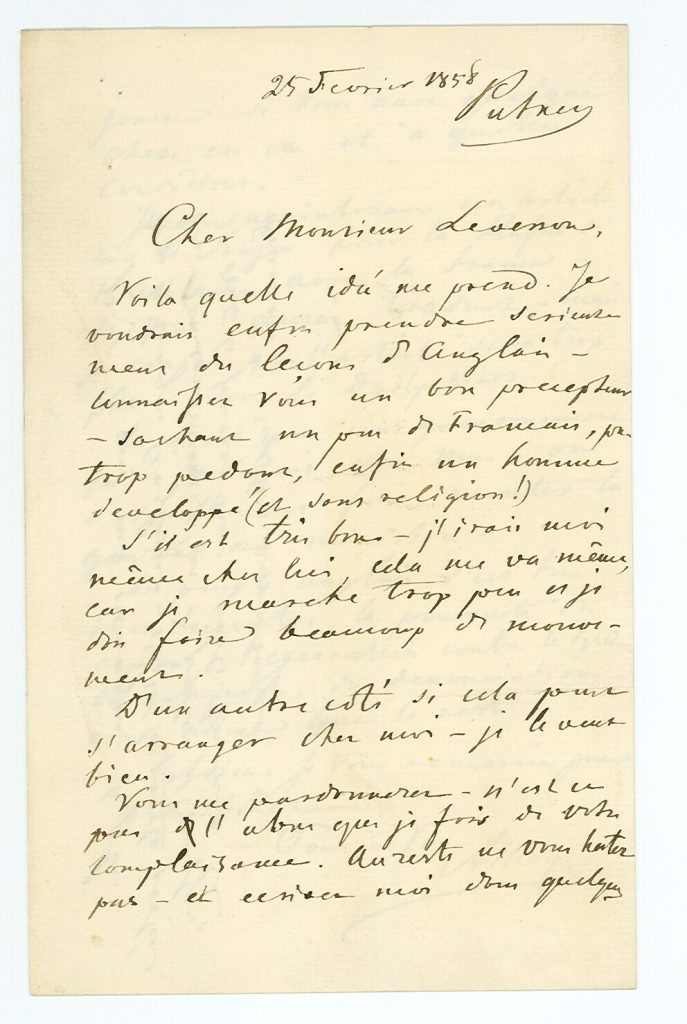 25 Fevrier 1858
Putney
Cher Monsieur Leverson,
Voila quelle idée me prend. Je
voudrais enfin prendre serieuse
ment des leçons d'Anglais –
connaissez Vous un bon precepteur
– sachant un peu de Francais, pas
trop pedant, enfin un homme
developpé (et sans religion!)
S'il est tres bon – j'irais moi
même chez lui, cela me va même,
car je marche trop peu et je
dois faire beaucoup de mouve-
ments.
D'un autre coté si cela peut
s'arranger chez moi – je le veux
bien.
Vous me pardonnerez – n'est ce
pas l'abus que je fais de votre
complaisance. Aureste ne vous hatez
pas – et ecrivez moi dans quelques